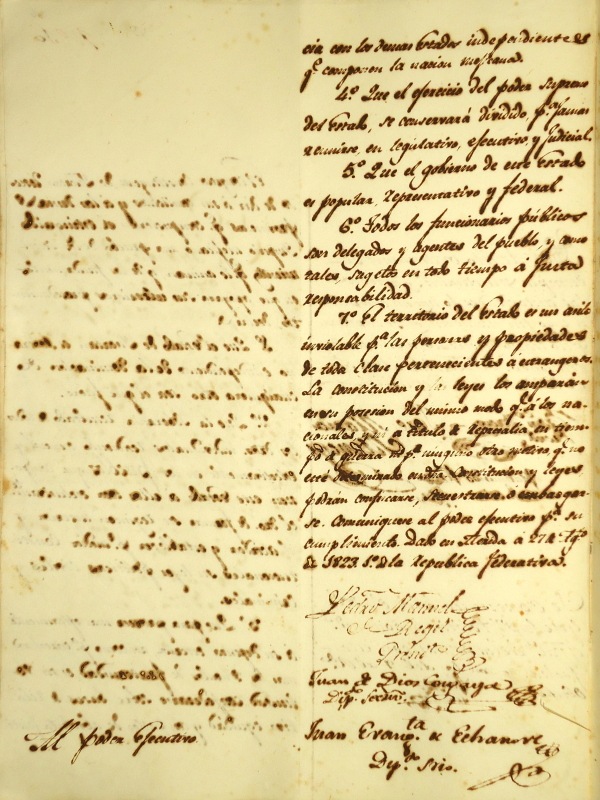 cia con los demas Estados independientes
q.e componen la nacion mexicana.
4.º Que el ejercicio del poder Supremo
del Estado, se conservará dividido, p.a jamas
reunirse, en legislativo, ejecutivo, y judicial.
5.º Que el gobierno de este Estado
es popular, representativo y federal.
6.º Todos los funcionarios públicos
son delegados y agentes del pueblo, y como
tales, sugetos en todo tiempo á justa
responsabilidad.
7.º El territorio del Estado es un asilo
inviolable p.a las personas y propiedades
de toda clase pertenecientes a extrangeros.
La constitución y las leyes los amparán
en su posesion del mismo modo q.e á los na-
cionales, y ni á título de represalia en tiem-
po de guerra ni p.r ningun otro motivo q.e no
esté determinado en dha. Constitucion y leyes
podrán confiscarse, secuestrarse o embargar-
se. Comuniquese al poder ejecutivo p.a su
cumplimiento. Dado en Merida á 27 de Ag.to
de 1823. 1.º de la Republica federativa.
Pedro Manuel
de Regil
Presid.te
Juan de Dios Cosgaya
Dip.º Secret.º
Juan Evang.ta de Echanove
Dip.º Srio.
Al poder Ejecutivo